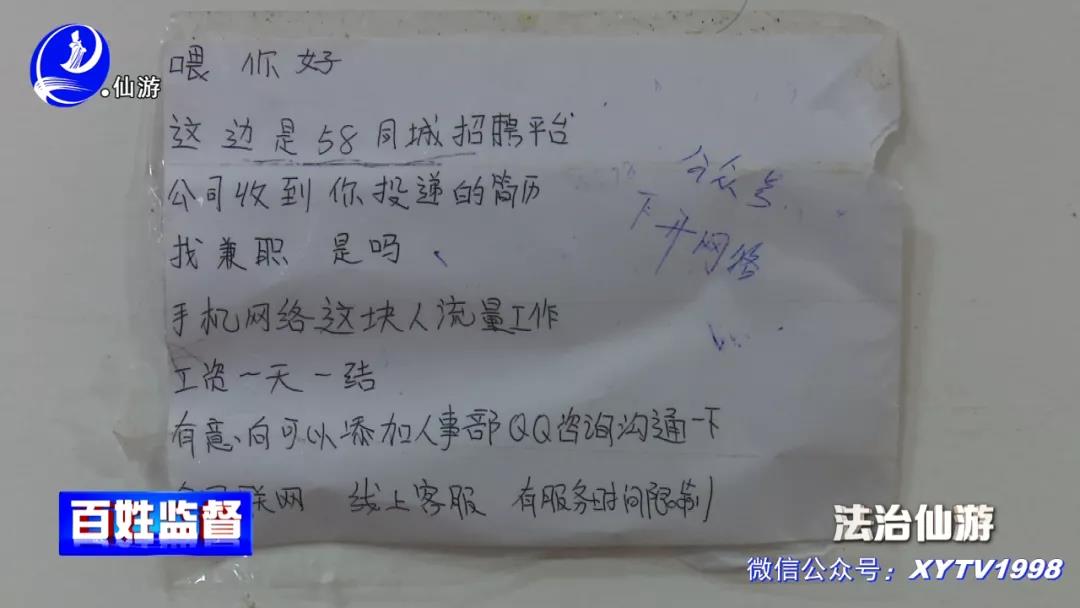 喂 你好
这边是58同城招聘平台
公司收到你投递的简历
找兼职 是吗
手机网络这块人流量工作
工资一天一结
有意向可以添加人事部QQ咨询沟通一下
联网 线上客服 有服务时间限制
公众号
下开网络
.仙游
百姓监督
法治仙游
微信公众号：XYTV1998